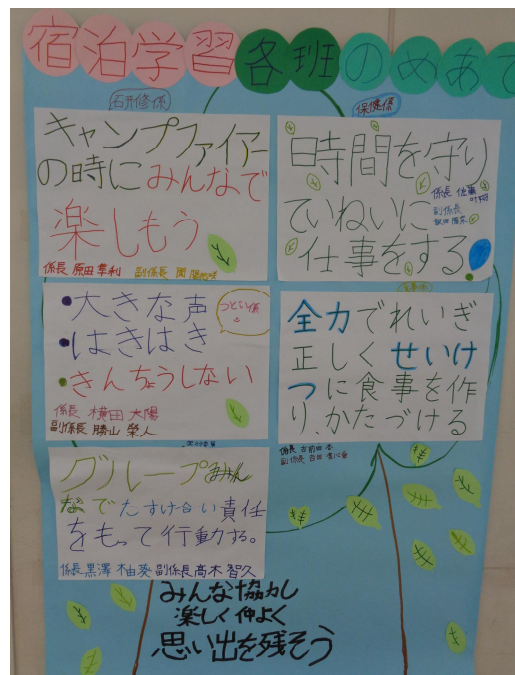 宿泊学習各班のめあて
研修係
キャンプファイアー
の時にみんなで
楽しもう
係長 原田 副係長
保健係
時間を守り
ていねいに
仕事をする。
係長 佐藤
副係長
つどい係
・大きな声
・はきはき
・きんちょうしない
係長 横田 太陽
副係長 勝山 榮人
全力でれいぎ
正しくせいけ
つに食事を作
り、かたづける
係長
副係長 吉田
グループみん
なでたすけ合い責任
をもって行動する。
係長 黒澤 柚葵 副係長 高木 智久
みんな協力し
楽しく仲よく
思い出を残そう